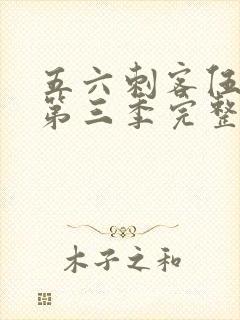 五六刺客伍
第三季完整
木子之和